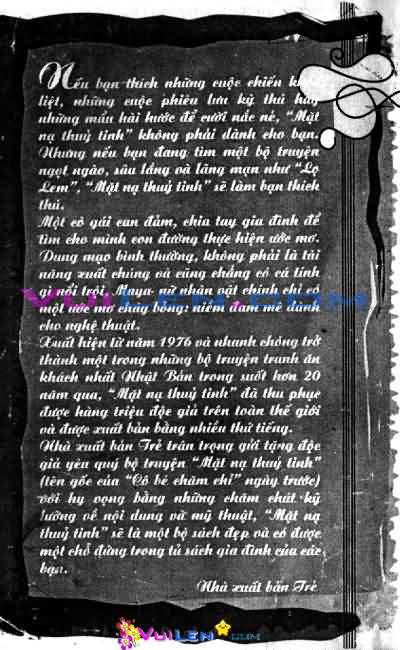 Nếu bạn thích những cuộc chiến
liệt, những cuộc phiêu lưu kỳ thú hay
những mẩu hài hước để cười nắc nẻ, “Mặt
nạ thuỷ tinh” không phải dành cho bạn.
Nhưng nếu bạn đang tìm một bộ truyện
ngọt ngào, sâu lắng và lãng mạn như “Lọ
Lem”, “Mặt nạ thuỷ tinh” sẽ làm bạn thích
thú.
Một cô gái can đảm, chia tay gia đình để
tìm cho mình con đường thực hiện ước mơ.
Dung mạo bình thường, không phải là tài
năng xuất chúng và cũng chẳng có cá tính
gì nổi trội, Maya- nữ nhân vật chính chỉ có
một ước mơ cháy bỏng: niềm đam mê dành
cho nghệ thuật.
Xuất hiện từ năm 1976 và nhanh chóng trở
thành một trong những bộ truyện tranh ăn
khách nhất Nhật Bản trong suốt hơn 20
năm qua, “Mặt nạ thuỷ tinh” đã thu phục
được hàng triệu độc giả trên toàn thế giới
và được xuất bản bằng nhiều thứ tiếng.
Nhà xuất bản Trẻ trân trọng gửi tặng độc
giả yêu quý bộ truyện “Mặt nạ thuỷ tinh”
(tên gốc của “Cô bé chăm chỉ” ngày trước)
với hy vọng bằng những chăm chút kỹ
lưỡng về nội dung và mỹ thuật, “Mặt nạ
thuỷ tinh” sẽ là một bộ sách đẹp và có được
một chỗ đứng trong tủ sách gia đình của các
bạn.
Nhà xuất bản Trẻ
VUILEN.COM
VUILEN.COM